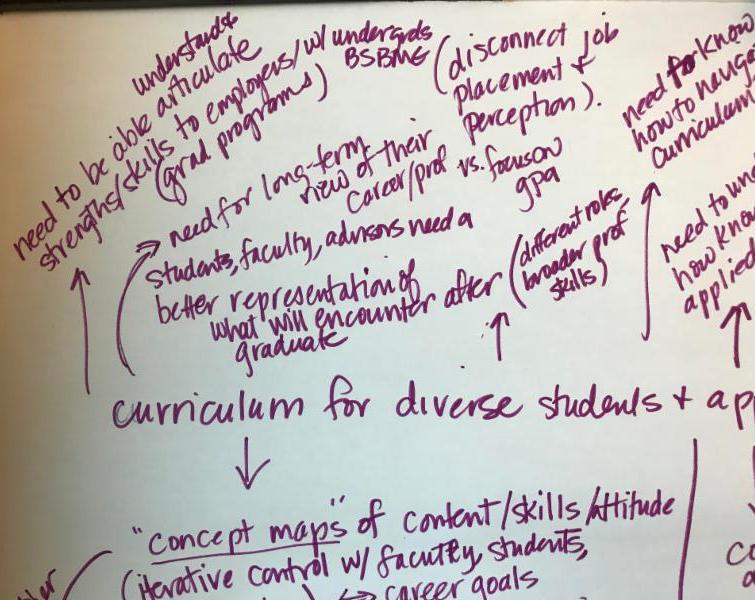 understand &
need to be able articulate
strengths/skills to employers/ w/ undergrads
BSBME
(grad programs)
(disconnect job
placement &
perception).
need for long-term
view of their
career/prof vs. focus on
gpa
students, faculty, advisors need a
better representation of
what will encounter after
graduate
(different roles,
broader prof
skills)
need for know
how to naviga
curriculum
need to un
how kno
applied
curriculum for diverse students + ap
"concept maps" of content/skills/attitude
(iterative control w/ faculty, students,
career goals